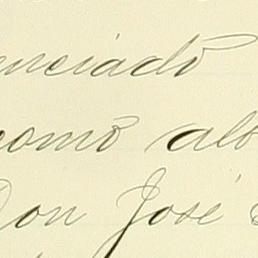 enciado
como alb
Don José